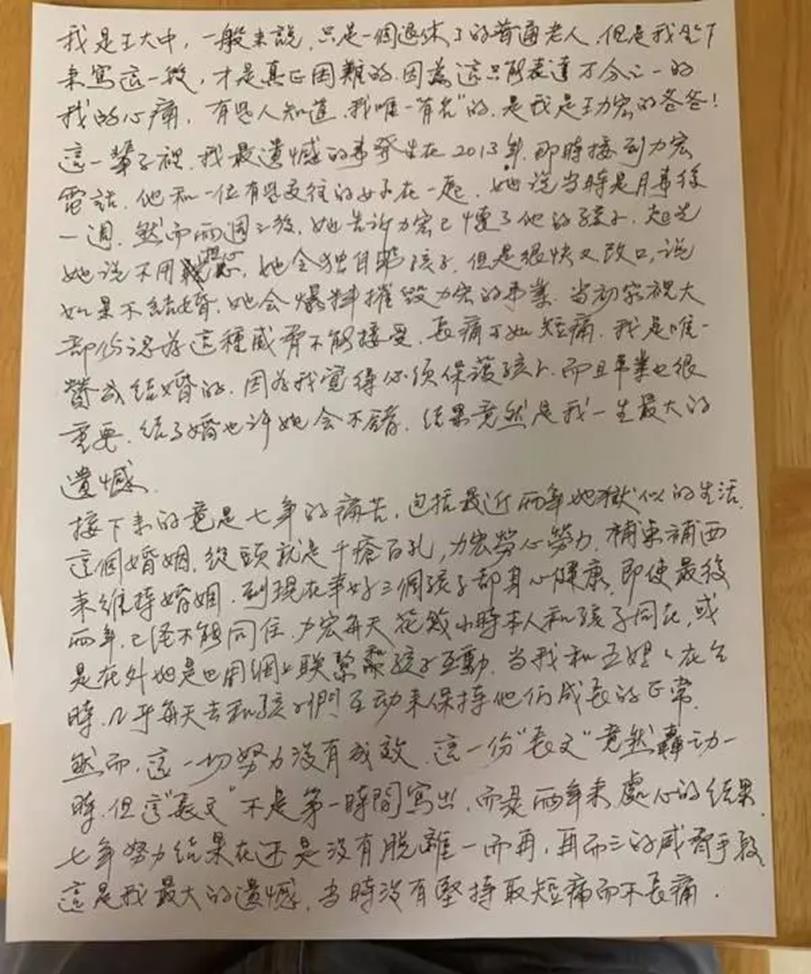 我是王大中，一般來說，只是一個退休了的普通老人，但是我坐下
來寫這一段，才是真正困難的，因為這只能表達萬分之一的
我的心痛，有些人知道，我唯一"有名"的，是我是王力宏的爸爸！
這一輩子裡，我最遺憾的事發生在2013年，即時接到力宏
電話，他和一位有些交往的女子在一起，她说當時是月事後
一週，然而兩週之後，她告诉力宏已懷了他的孩子，起先
她说不用擔心，她会独自帶孩子，但是很快又改口，说
如果不結婚，她会爆料摧毀力宏的事業，當初家裡大
部份認為這種威脅不能接受，長痛不如短痛，我是唯一
贊成結婚的，因為我覺得必須保護孩子，而且事業也很
重要，結了婚也许她会不錯，結果竟然是我一生最大的
遺憾．
接下來的竟是七年的痛苦，包括最近兩年地獄似的生活，
這個婚姻，從頭就是千瘡百孔，力宏勞心勞力，補東補西
來維持婚姻，到現在幸好三個孩子都身心健康，即使最後
兩年，已经不能同住，力宏每天花數小時本人和孩子同在，或
是在外地是也用網上联繫和孩子互動，当我和王媽媽在台
時，几乎每天去和孩子們互动來保持他们成長的正常，
然而，這一切努力没有成效，這一份"長文"竟然轟动一
時，但這"長文"不是第一時間寫出，而是兩年來處心的結果，
七年努力結果在还是没有脱離一而再，再而三的威脅手段，
這是我最大的遺憾，当時没有堅持取短痛而不長痛．